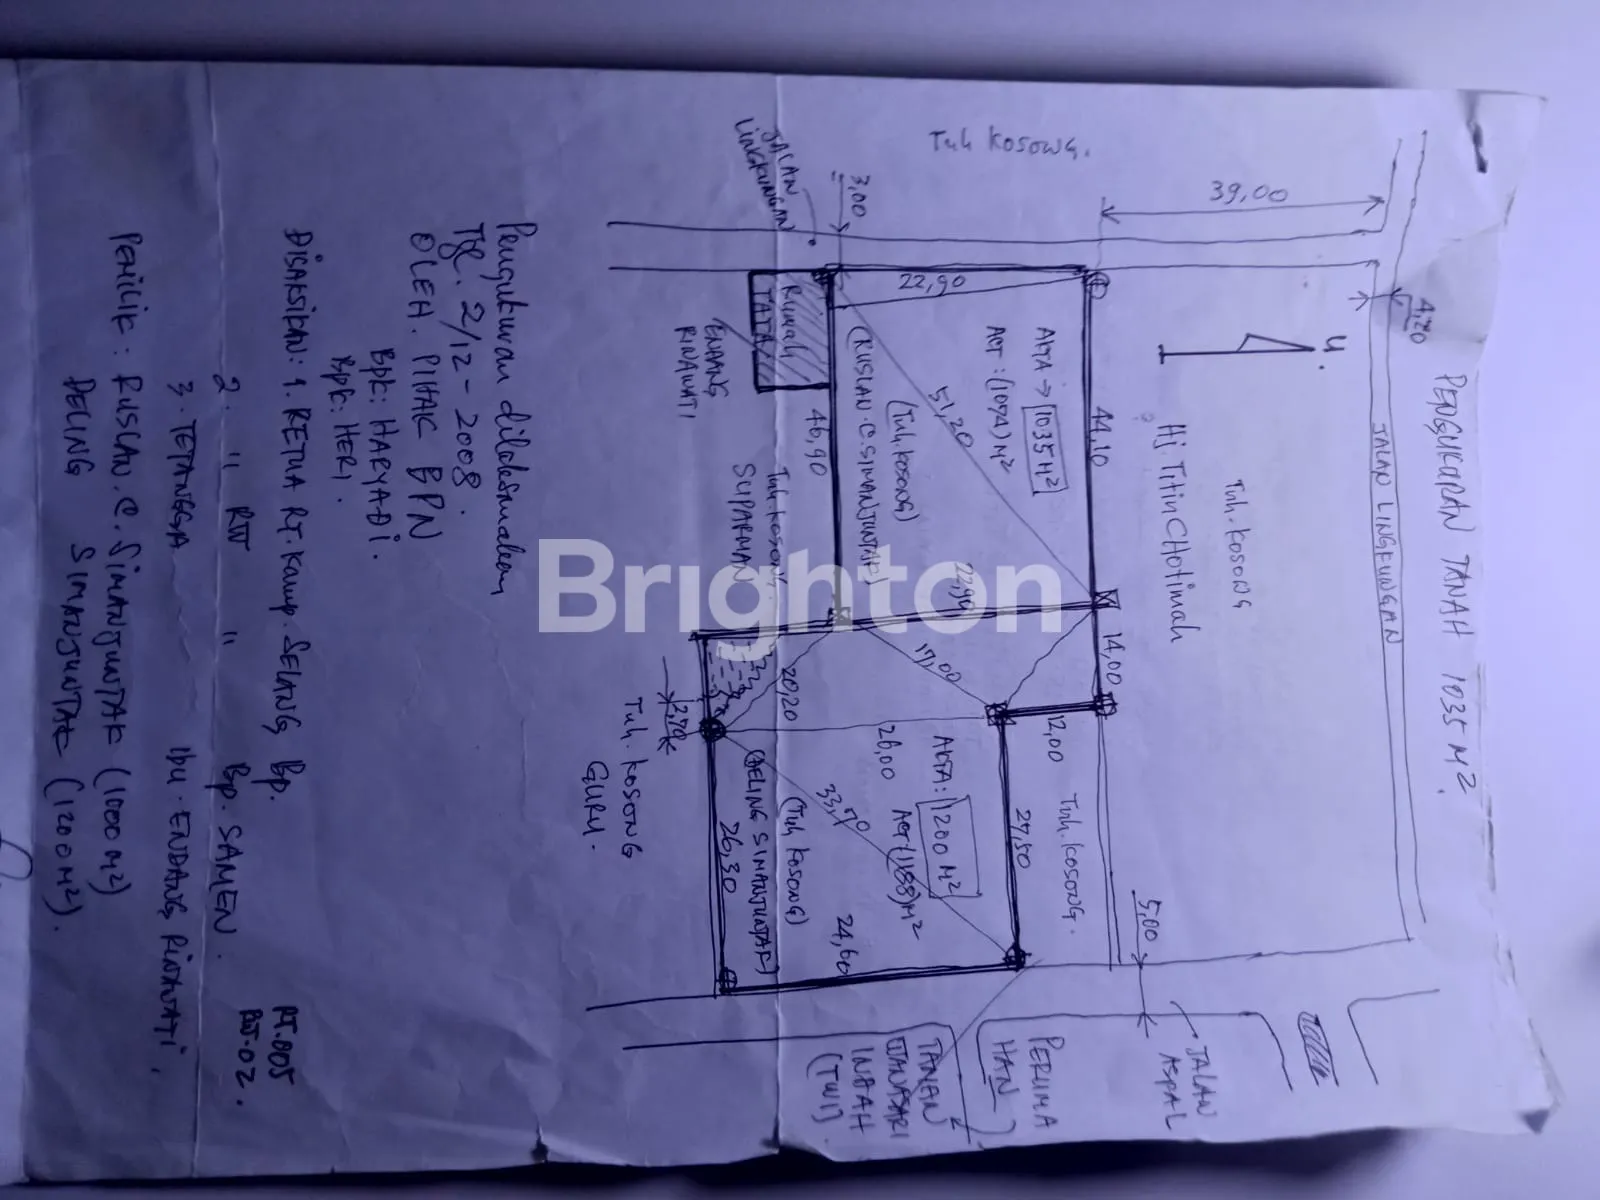 PENGUKURAN TANAH 1035 M².
4,20
JALAN LINGKUNGAN
39,00
U.
Tnh. Kosong
Hj TitinCHotimah
Tnh Kosong.
5,00
JALAN
ASPAL
44,10
14,00
22,90
AKTA → 1035 M²
ACT : (1074) M²
51,20
(Tnh. Kosong)
(RUSLAN.C.SIMANJUNTAK)
22,90
3,00
JALAN
LINGKUNGAN
Rumah
TATA
46,90
ENDANG
RINAWATI
Tnh. Kosong
SUPARMAN
17,00
12,00
Tnh. Kosong.
27,50
AKTA: 1200 M²
ACT (1188) M²
26,00
20,20
33,70
(Tnh Kosong)
(DELING SIMANJUNTAK)
24,60
26,30
2,70
Tnh. Kosong
GURU.
PERUMA
HAN
TANAH
WANASARI
INDAH
(TWI)
Pengukuran dilaksanakan
Tgl. 2/12-2008.
OLEH. PIHAK BPN
Bpk: HARYADI.
Bpk: HERI.
DISAKSIKAN: 1. KETUA RT. Kamp. SELANG Bp. RT.005
2. " RW " Bp. SAMEN. RW.02.
3. TETANGGA Ibu. ENDANG RINAWATI.
PEMILIK : RUSLAN. C. SIMANJUNTAK (1000 M²)
DELING SIMANJUNTAK (1200 M²).
Brighton